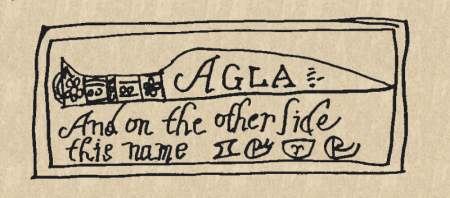 AGLA
And on the other ſide
this name